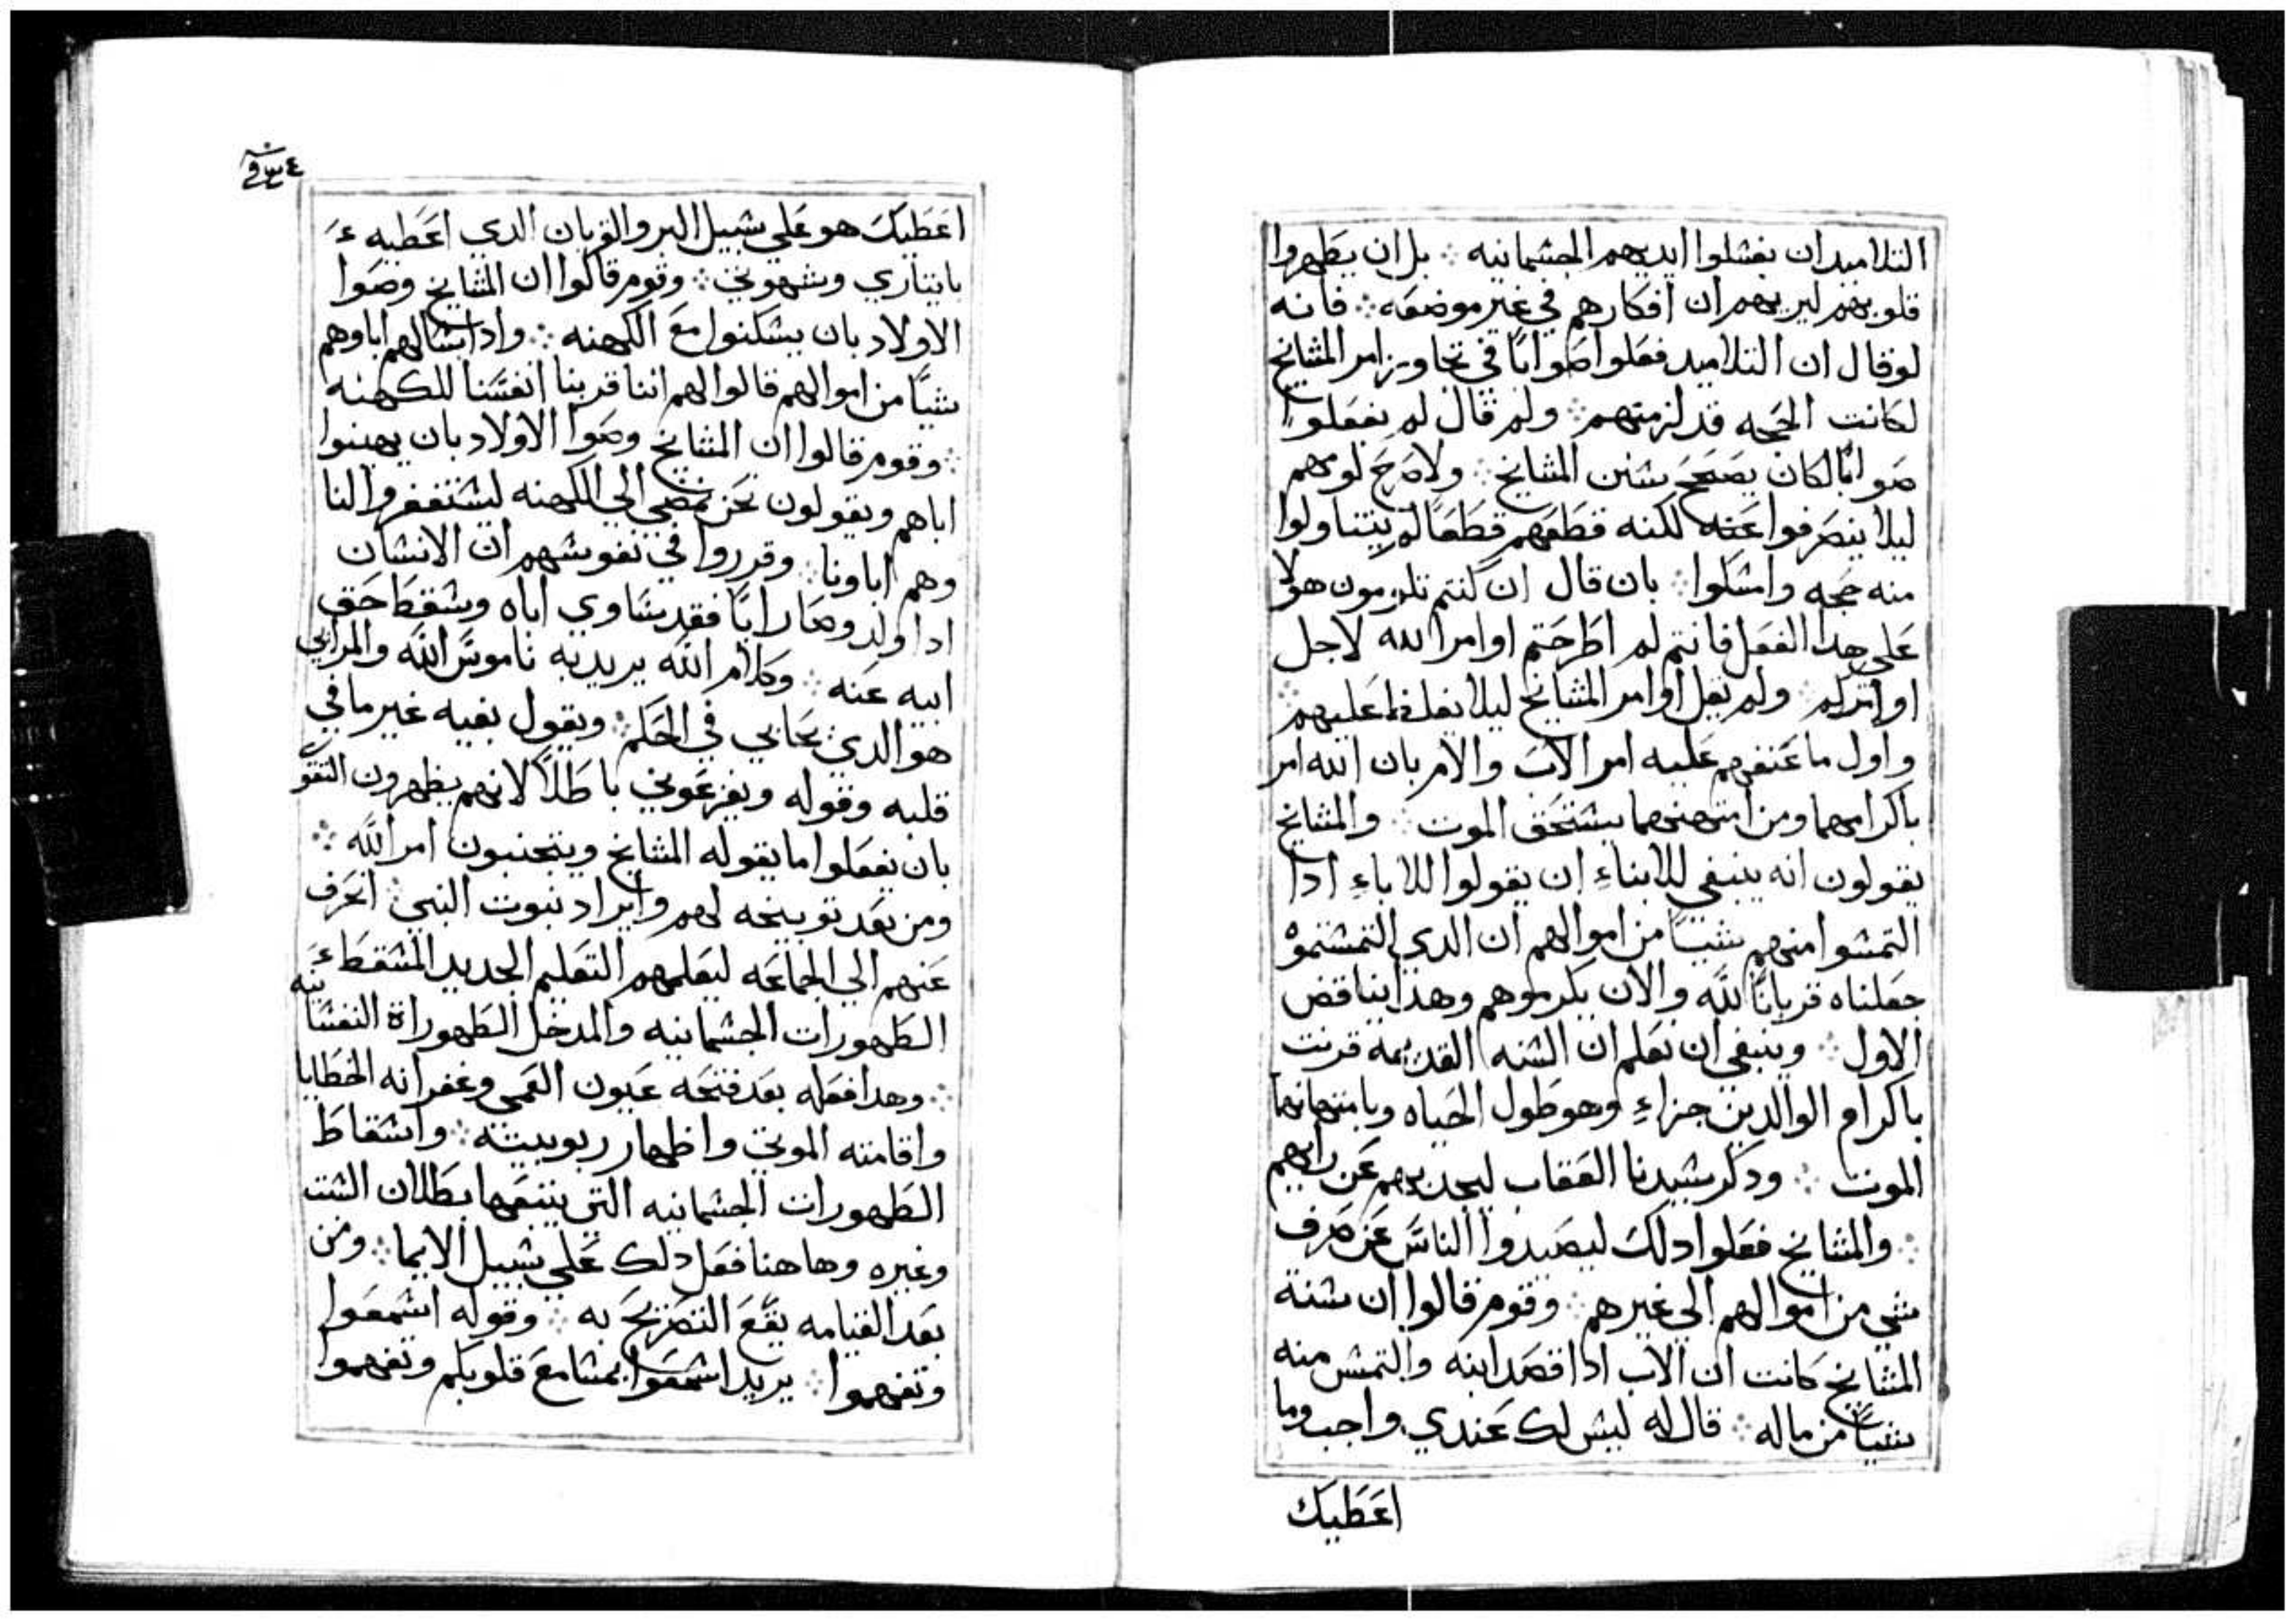 التلاميد ان يغشلوا ايديهم الجشمانيه ܀ بل ان يطهروا
قلوبهم ليريهم ان افكارهم في غير موضعه ܀ فانه
لو قال ان التلاميد فعلوا صوابًا في تجاوز امر المشايخ
لكانت الحجه قد لزمتهم ܀ ولو قال لم يفعلوا
صوابًا لكان يصحح شنن المشايخ ܀ ولا صرح لومهم
ليلا ينصرفوا عنه لكنه قطعهم قطعًا لم يتناولوا
منه حجه وامشكوا ܀ بان قال ان كنتم تلومون هولا
على هدا الفعل فانتم لم اطرحتم اوامر الله لاجل
اوامركم ܀ ولم يقل اوامر المشايخ ليلا يغلظ عليهم ܀
واول ما عنفهم عليه امر الاب والام بان الله امر
باكرامهما ومن امتهنهما يشتحق الموت ܀ والمشايخ
يقولون انه ينبغي للابناءِ ان يقولوا للاباءِ ادا
التمشوا منهم شيئًا من اموالهم ان الدي التمشتموه
جعلناه قربانًا لله والان يكرموهم وهدا يناقض
الاول ܀ وينبغي ان نعلم ان الشنه القديمه قرنت
باكرام الوالدين جزاءِ وهو طول الحياه وبامتهانهما
الموت ܀ ودكر شيدنا العقاب ليجديهم عن رايهم
܀ والمشايخ فعلوا دلك ليصيدوا الناس عن صرف
شي من اموالهم الي غيرهم ܀ وقوم قالوا ان شنة
المشايخ كانت ان الاب ادا قصد ابنه والتمش منه
شيئًا من ماله ܀ قال له ليش لك عندي واجب وما
اعطيك
اعطيك هو علي شبيل البر والقربان الدي اعطيه
باثياري وشهوتي ܀ وقوم قالوا ان المشايخ وصوا
الاولاد بان يشكنوا مع الكهنه ܀ وادا شالهم اباوهم
شيًا من اموالهم قالوا لهم اننا قربنا انفشنا للكهنه
܀ وقوم قالوا ان المشايخ وصوا الاولاد بان يهينوا
اباهم ويقولون نحن نمضي الي الكهنه ليشتغفروا لنا
وهم اباونا ܀ وقرروا في نفوشهم ان الانشان
ادا ولد وصار ابًا فقد يشاوي اباه ويشقط حق
ابيه عنه ܀ وكلام الله يريد به ناموس الله والمرايي
هو الدي يحابي في الحكم ܀ ويقول بفيه غير ما في
قلبه وقوله ويفزعوني باطلاً لانهم يظهرون التقوى
بان يفعلوا ما يقوله المشايخ ويتجنبون امر الله ܀
ومن بعد توبيخه لهم وايراد نبوت النبي ܀ انحرف
عنهم الي الجماعه ليعلمهم التعليم الجديد المشقط
الطهورات الجشمانيه والمدخل الطهوراة النفشانيه
܀ وهدا فعله بعد فتحه عيون العمي وغفرانه الخطايا
واقامته الموتي واظهار ربوبيته ܀ واشقاط
الطهورات الجشمانيه التي يتبعها بطلان الشبت
وغيره وهاهنا فعل دلك علي شبيل الايما ܀ ومن
بعد القيامه يقع التصريح به ܀ وقوله اشمعوا
وتفهموا ܀ يريد اشمعوا بمشامع قلوبكم وتفهموا